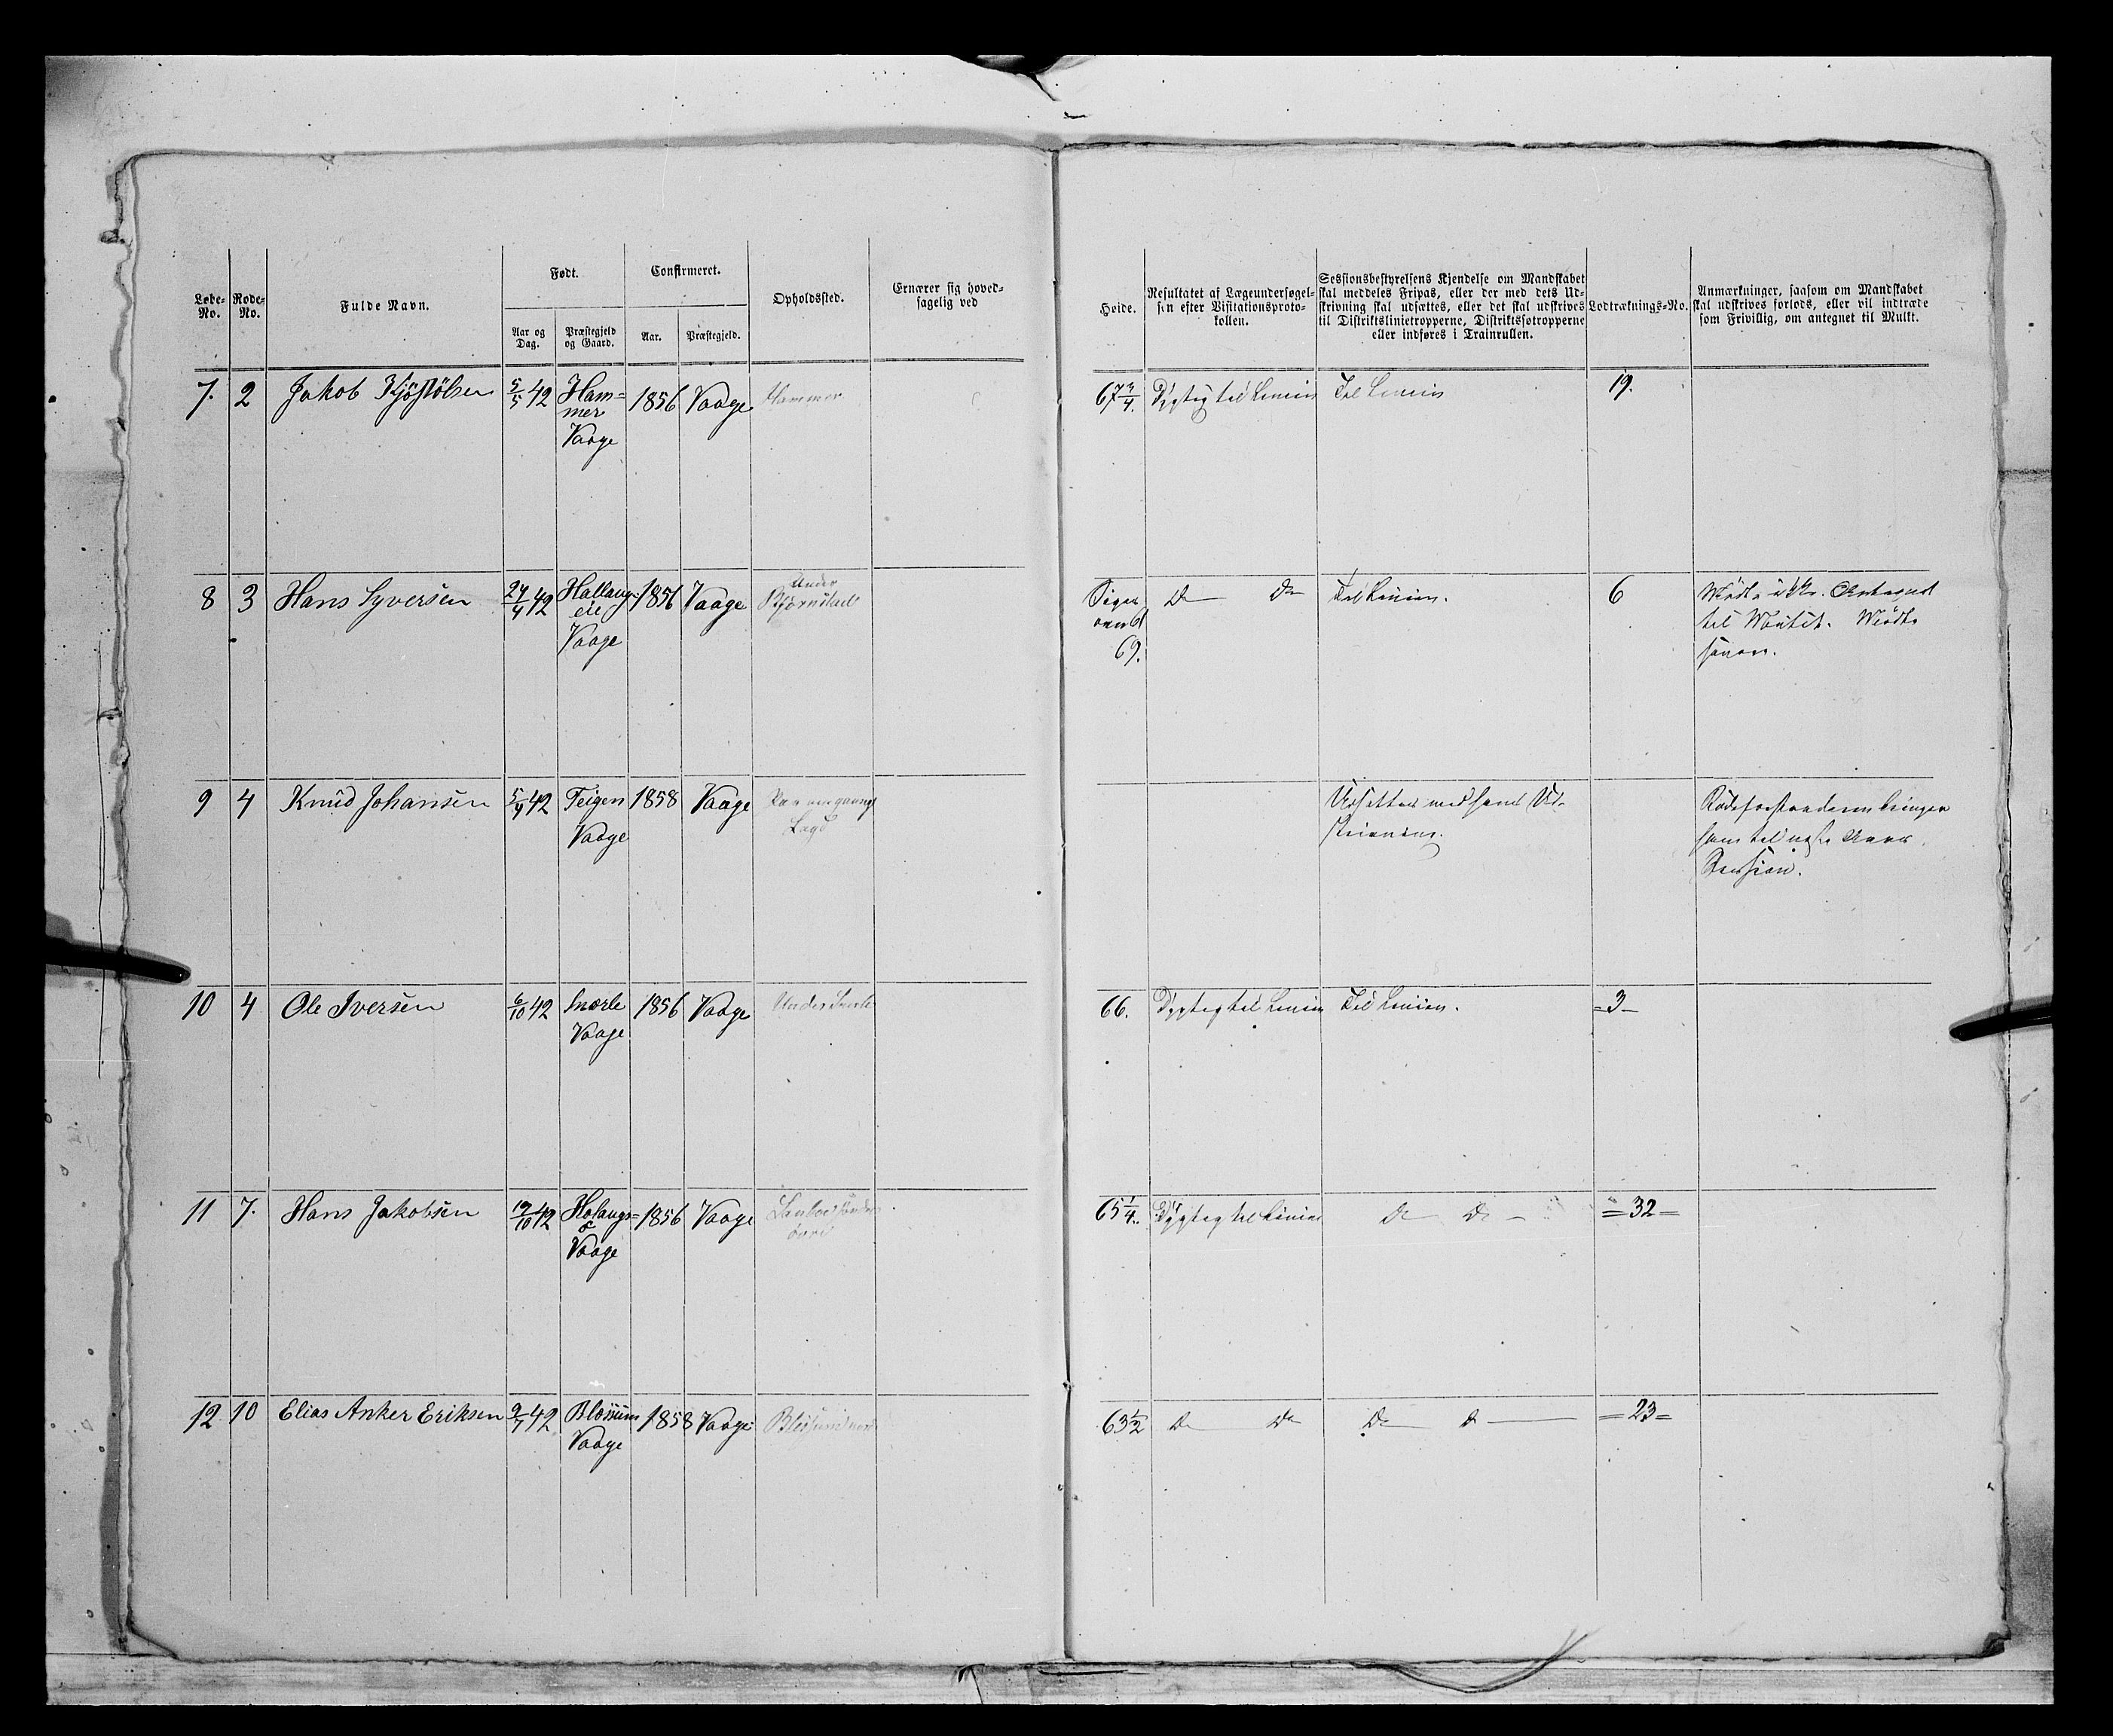 Løbe-No.
Rode-No.
Fulde Navn.
Født.
Aar og Dag.
Præstegjeld og Gaard.
Confirmeret.
Aar.
Præstegjeld.
Opholdssted.
Ernærer sig hoved-
sagelig ved
Høide.
Resultatet af Lægeundersøgel-
sen efter Visitationsproto-
kollen.
Sessionsbestyrelsens Kjendelse om Mandskabet
skal meddeles Fripas, eller der med dets Ud-
skrivning skal udsættes, eller det skal udskrives
til Distriktslinietropperne, Distriktssøtropperne
eller indføres i Trainrullen.
Lodtræknings-No.
Anmærkninger, saasom om Mandskabet
skal udskrives forlods, eller vil indtræde
som Frivillig, om antegnet til Mulkt.
7. 2 Jakob Kjøstølsen 5/5 42 Ham= 1856 Vaage Hammer 67 3/4. Dygtig til Linien Til Linien 19.
mer
Vaage
8 3 Hans Syversen 24/4 42 Hallangs= 1856 Vaage Under Bjørnstad Siger D D Til Linien. 6 Mødte ikke. Antegnet
eie
Vaage
69.
til Mulct. Mødte
senere.
9 4 Knud Johansen 5/4 42 Teigen 1858 Vaage Udsættes med hans Ud-
Vaage Lægd
skrivning.
Rodeforstanderen bringer
ham til næste Aars
Session.
10 4 Ole Iversen 6/10 42 Snerle 1856 Vaage Under Snerle 66. Dygtig til Linien Til Linien. =3=
Vaage
11 7. Hans Jakobsen 19/10 42 Holungs= 1856 Vaage 65 1/4. Dygtig til Linien D D =32=
ø
Vaage
12 10 Elias Anker Eriksen 9/7 42 Blessum 1858 Vaage 63 1/2 D D D D =23=
Vaage